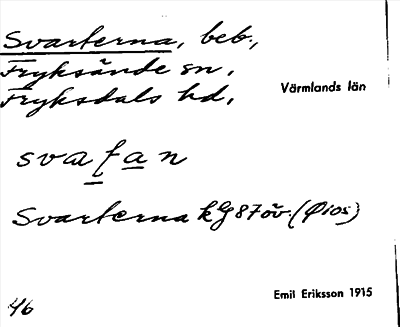 Svarterna, beb.,
Fryksände sn.
Fryksdals hd,
Värmlands län
Svarterna
46
Emil Eriksson 1915